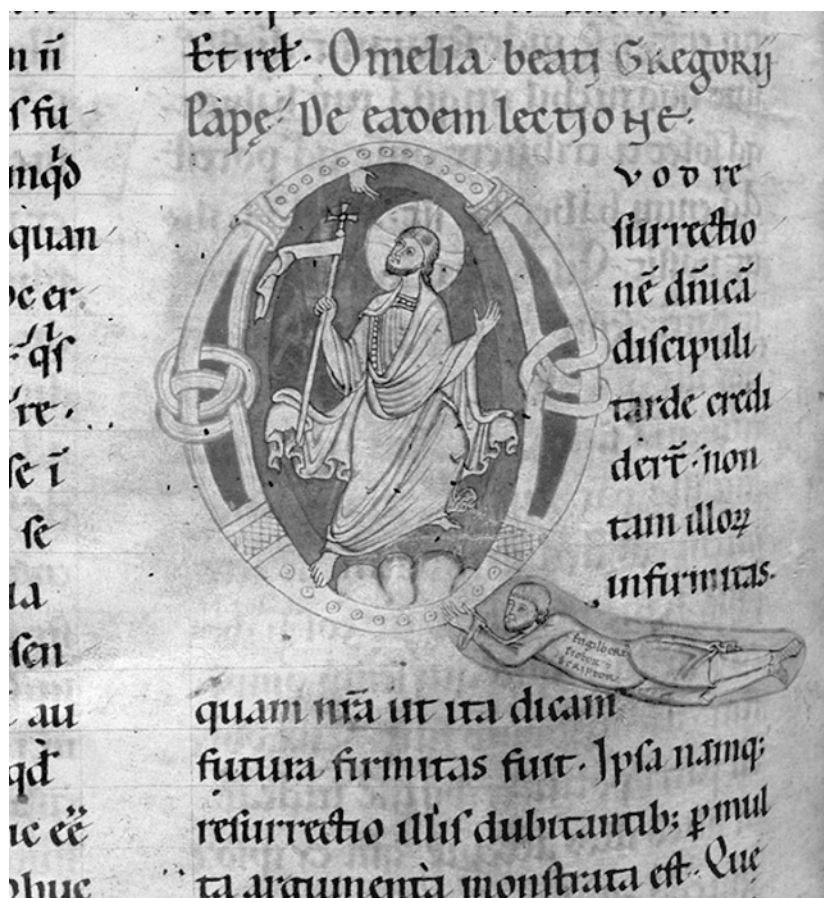 n n̄
ſ fu
quan
oc er
re.
ſe ī
ſe
ia
ſen
au
qđ
ic eē
Et rel̄. Omelia beati Gregorij
Papę. De eadem lectione.
vod re
ſurrectio
nē dn̄icā
diſcipuli
tarde credi
der̄t. non
tam illoꝝ
infirmitas.
Engilbert
SCRIPTOR
quam nr̄a ut ita dicam
futura firmitas fuit. Ipſa namq;
reſurrectio illiſ dubitantib; ꝑ mul
ta argumenta monſtrata eſt. Que